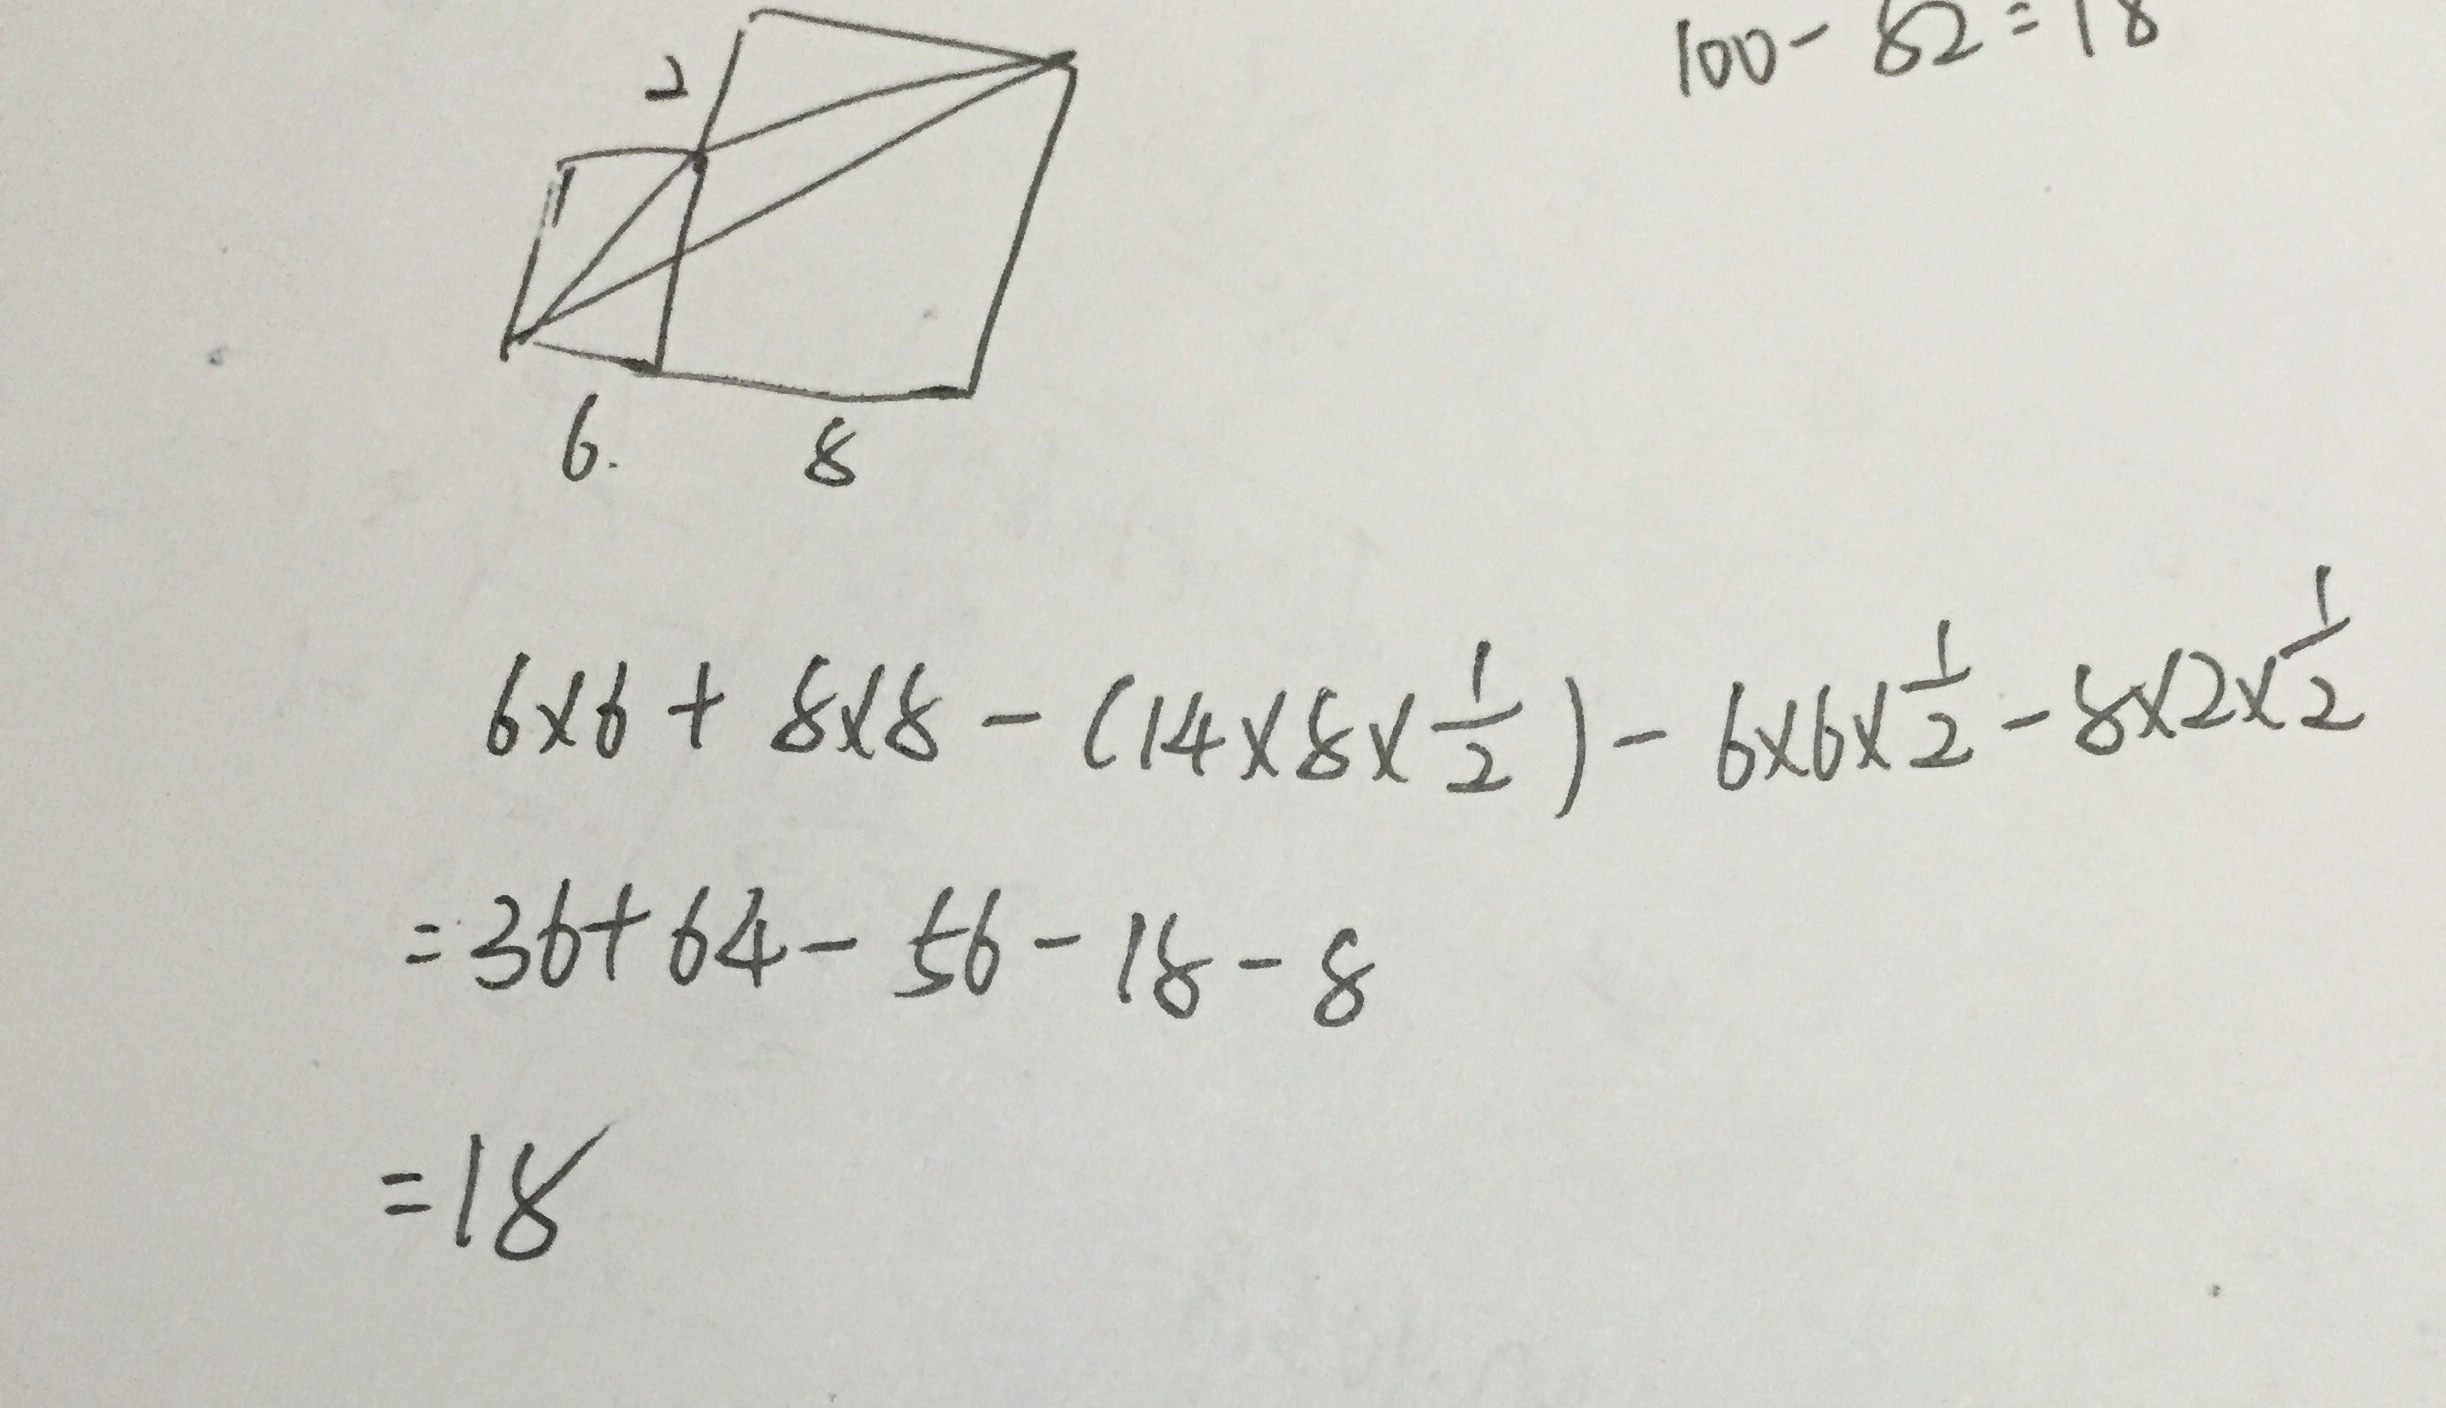 100 - 82 = 18
2
6.
8
6×6 + 8×8 - (14×8×1/2) - 6×6×1/2 - 8×2×1/2
= 36 + 64 - 56 - 18 - 8
= 18